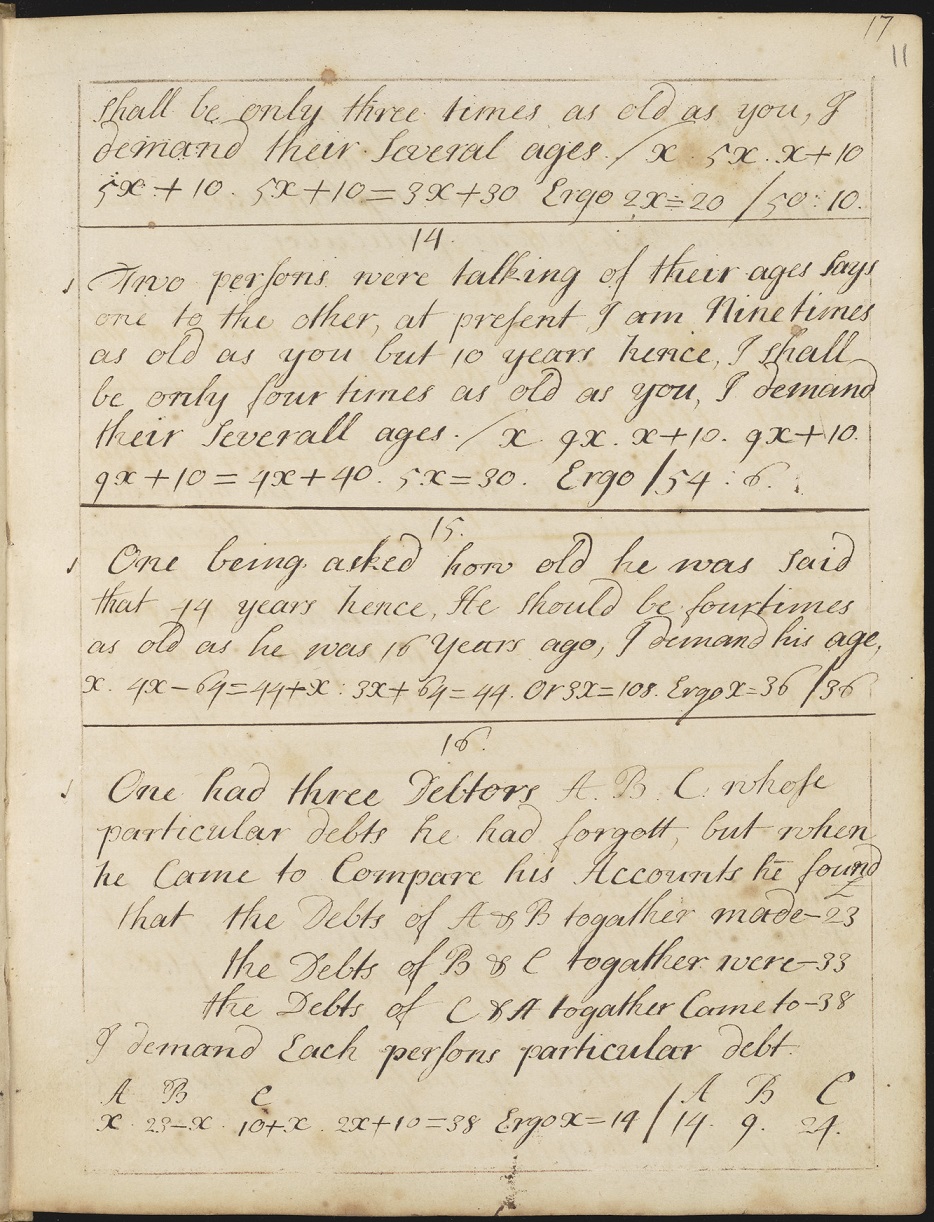 17
11
shall be only three times as old as you, I
demand their Several ages. / x. 5x. x+10
5x + 10. 5x+10=3x+30 Ergo 2x=20 / 50:10.
14.
Two persons were talking of their ages Says
one to the other, at present I am Nine times
as old as you but 10 years hence, I shall
be only four times as old as you, I demand
their Severall ages. / x. 9x. x+10. 9x+10.
9x+10 = 4x+40. 5x=30. Ergo / 54 : 6.
15.
One being asked how old he was Said
that 44 years hence, He Should be fourtimes
as old as he was 16 Years ago, I demand his age,
x. 4x-64=44+x : 3x+64=44. Or 3x=108. Ergo x=36 / 36
16.
One had three Debtors A. B. C. whose
particular debts he had forgott, but when
he Came to Compare his Accounts he found
that the Debts of A & B togather made-23
the Debts of B & C togather were-33
the Debts of C & A togather Came to-38
I demand Each persons particular debt.
A B C A B C
x. 23-x. 10+x. 2x+10=38 Ergo x=14 / 14. 9. 24.